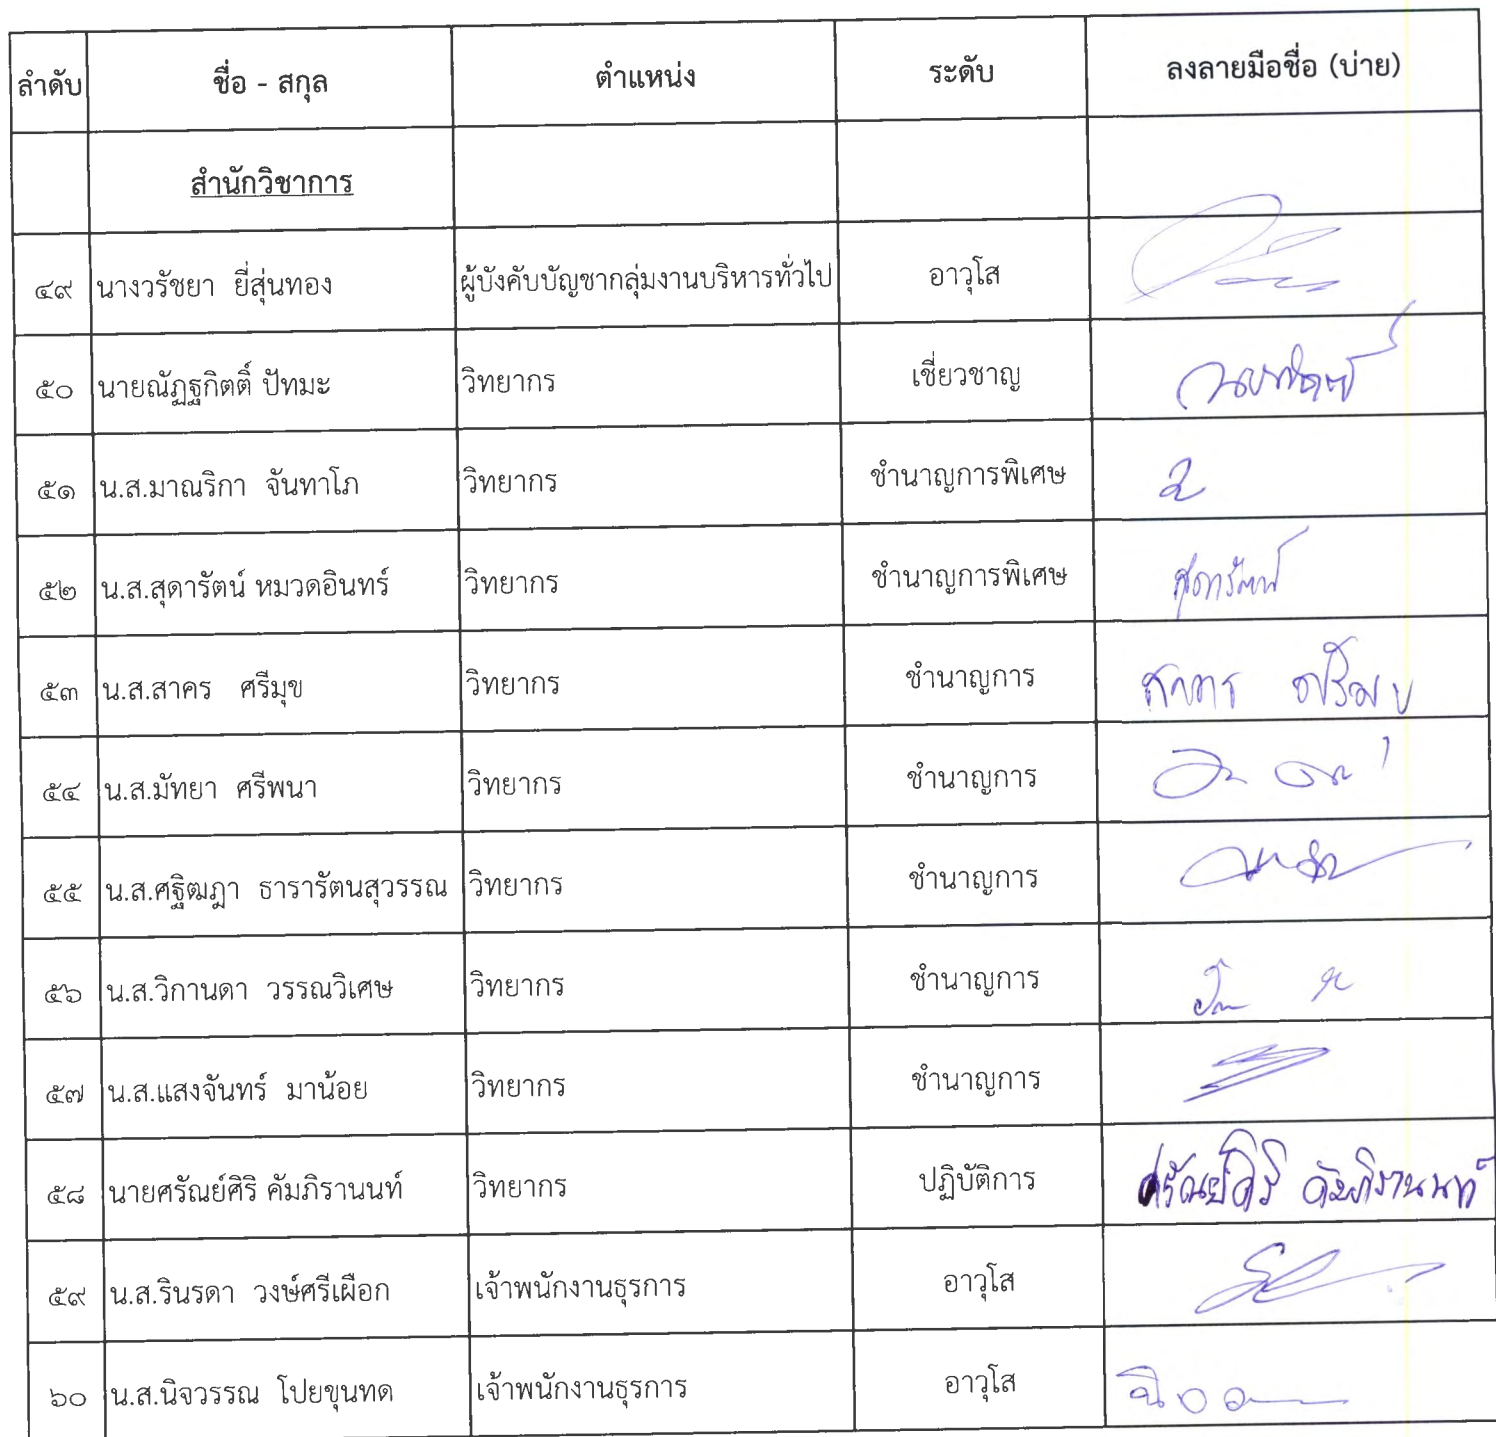 ลำดับ ชื่อ - สกุล ตำแหน่ง ระดับ ลงลายมือชื่อ (บ่าย)
สำนักวิชาการ
๔๙ นางวรัชยา ยี่สุ่นทอง ผู้บังคับบัญชากลุ่มงานบริหารทั่วไป อาวุโส
๕๐ นายณัฏฐกิตติ์ ปัทมะ วิทยากร เชี่ยวชาญ
๕๑ น.ส.มาณริกา จันทาโภ วิทยากร ชำนาญการพิเศษ
๕๒ น.ส.สุดารัตน์ หมวดอินทร์ วิทยากร ชำนาญการพิเศษ สุดารัตน์
๕๓ น.ส.สาคร ศรีมุข วิทยากร ชำนาญการ สาคร ศรีมุข
๕๔ น.ส.มัทยา ศรีพนา วิทยากร ชำนาญการ
๕๕ น.ส.ศฐิฒฎา ธารารัตนสุวรรณ วิทยากร ชำนาญการ
๕๖ น.ส.วิกานดา วรรณวิเศษ วิทยากร ชำนาญการ
๕๗ น.ส.แสงจันทร์ มาน้อย วิทยากร ชำนาญการ
๕๘ นายศรัณย์ศิริ คัมภิรานนท์ วิทยากร ปฏิบัติการ ศรัณย์ศิริ คัมภิรานนท์
๕๙ น.ส.รินรดา วงษ์ศรีเผือก เจ้าพนักงานธุรการ อาวุโส
๖๐ น.ส.นิจวรรณ โปยขุนทด เจ้าพนักงานธุรการ อาวุโส